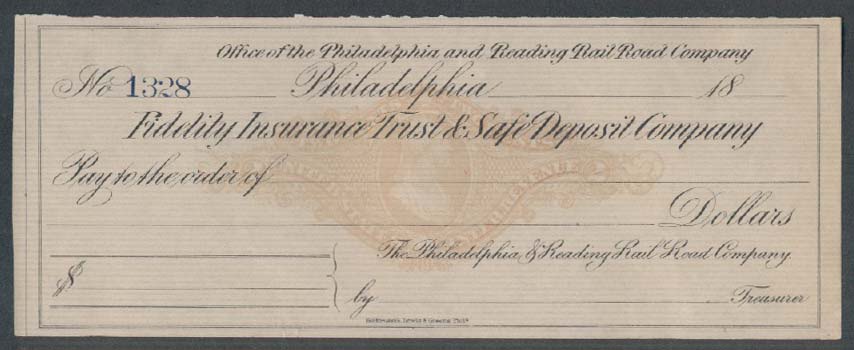 Office of the Philadelphia and Reading Rail Road Company
No 1328 Philadelphia 18
Fidelity Insurance Trust & Safe Deposit Company
Pay to the order of
Dollars
The Philadelphia & Reading Rail Road Company.
$
by Treasurer